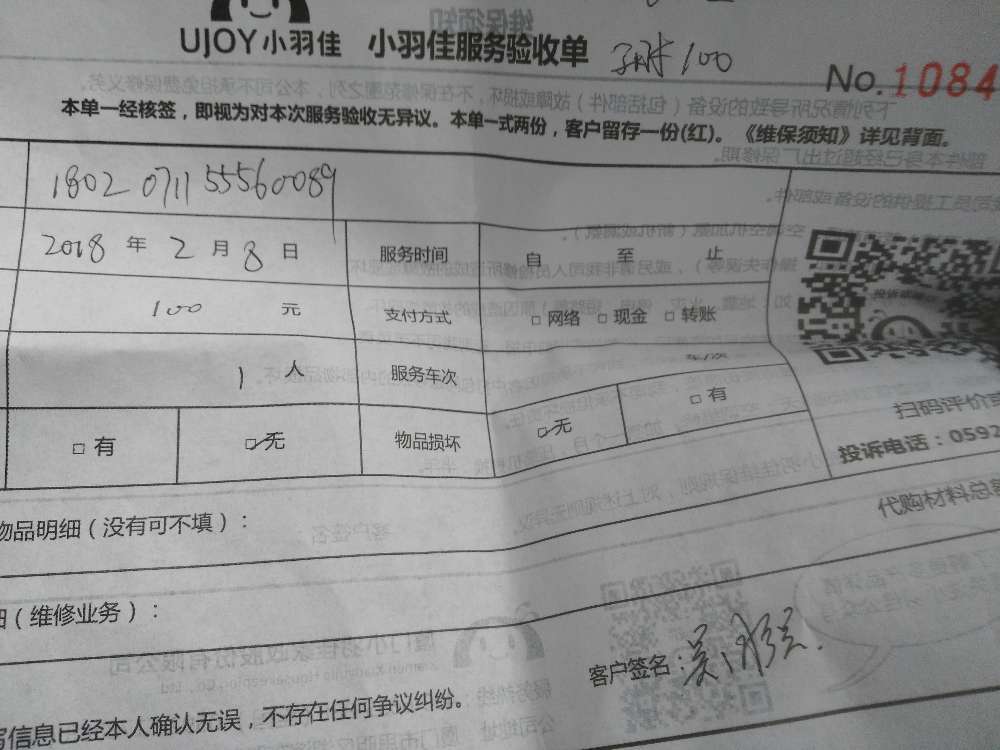 UJOY小羽佳 小羽佳服务验收单 100
No.1084
本单一经核签，即视为对本次服务验收无异议。本单一式两份，客户留存一份(红)。《维保须知》详见背面。
1802071155560089
2018 年 2 月 8 日 服务时间 自 至 止
100 元 支付方式 □ 网络 □ 现金 □ 转账
1 人 服务车次 车/次
□ 有 □ 无 物品损坏 □ 无 □ 有
扫码评价
投诉电话：0592
物品明细（没有可不填）： 代购材料总
细（维修业务）：
客户签名：吴
写信息已经本人确认无误，不存在任何争议纠纷。